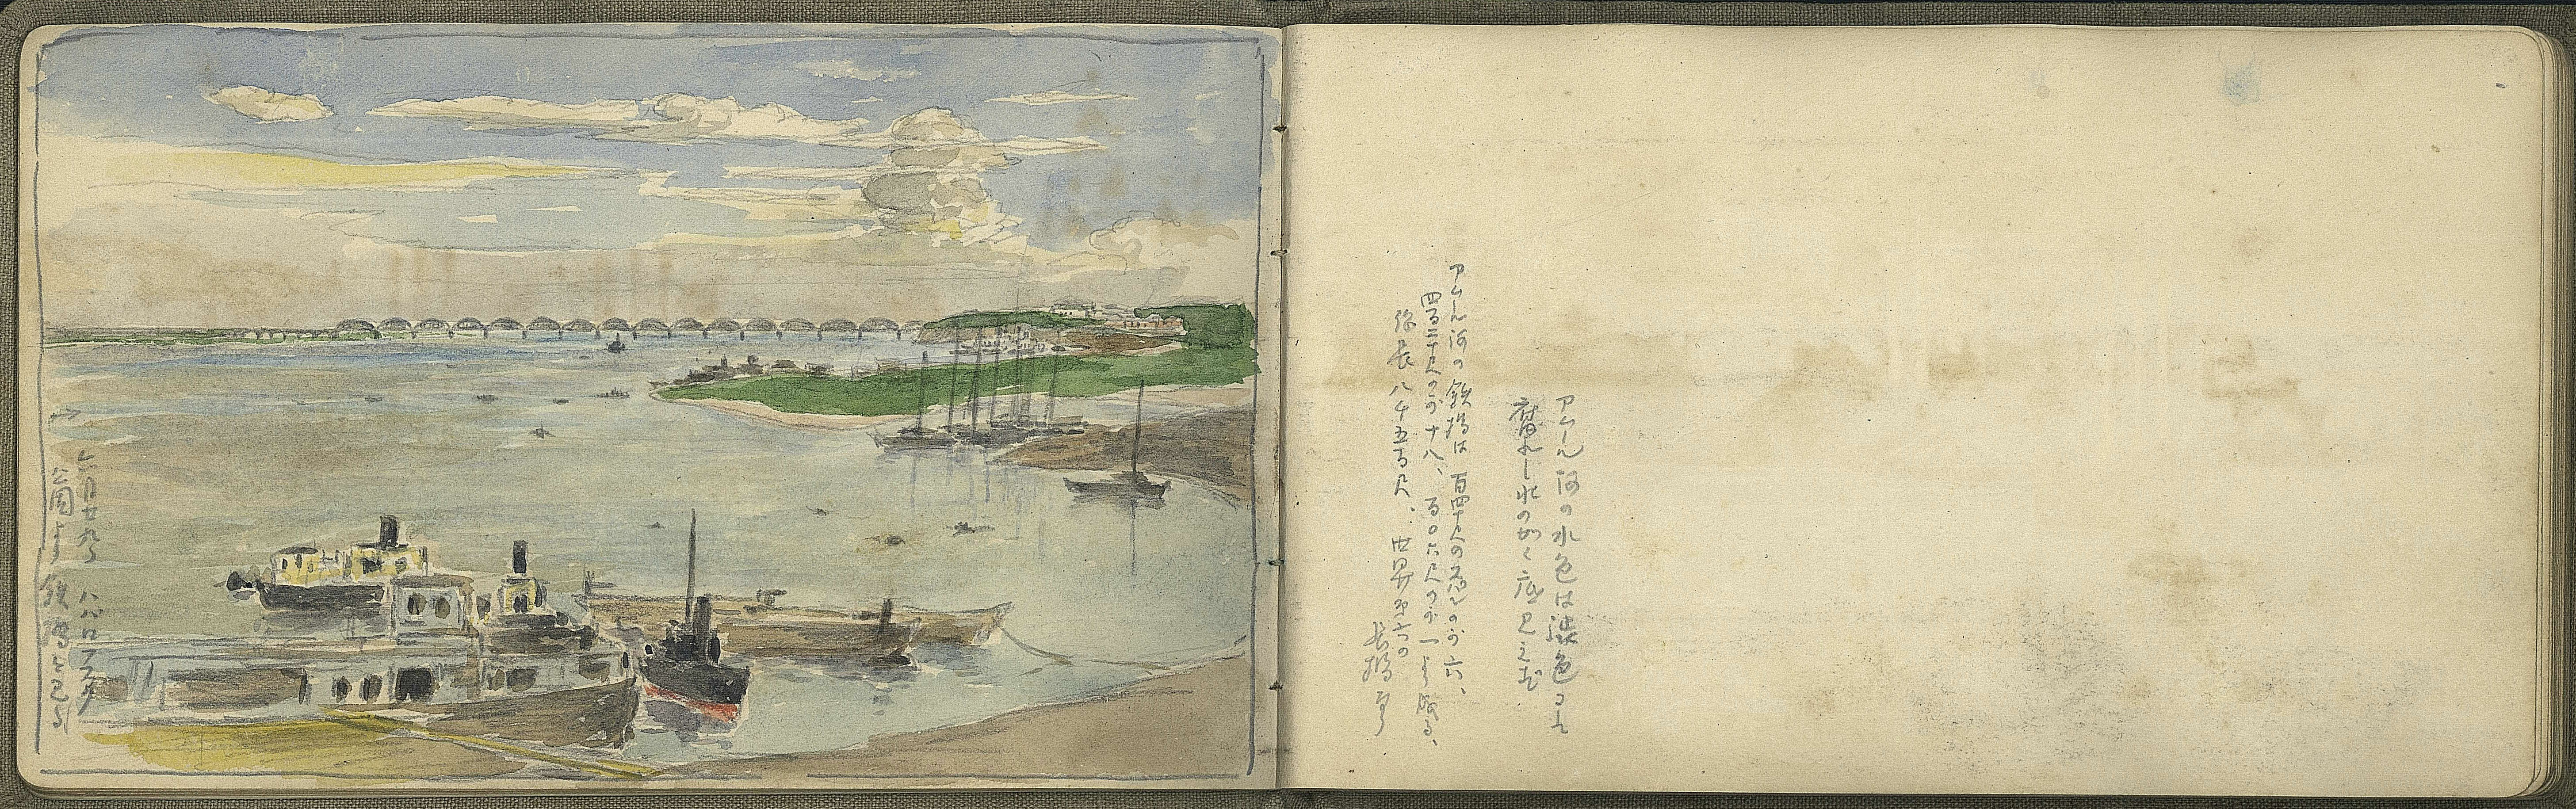 アムール河の水色は渋色にて
腐れし水の如く底見えず
アムール河の鉄橋は百四十尺ののが六、
四百二十尺のが十八、百〇六尺のが一より成る、
総長八千五百尺、世界第六の
長橋なり
六月廿九日 ハバロフスク
公園より鉄橋を見る